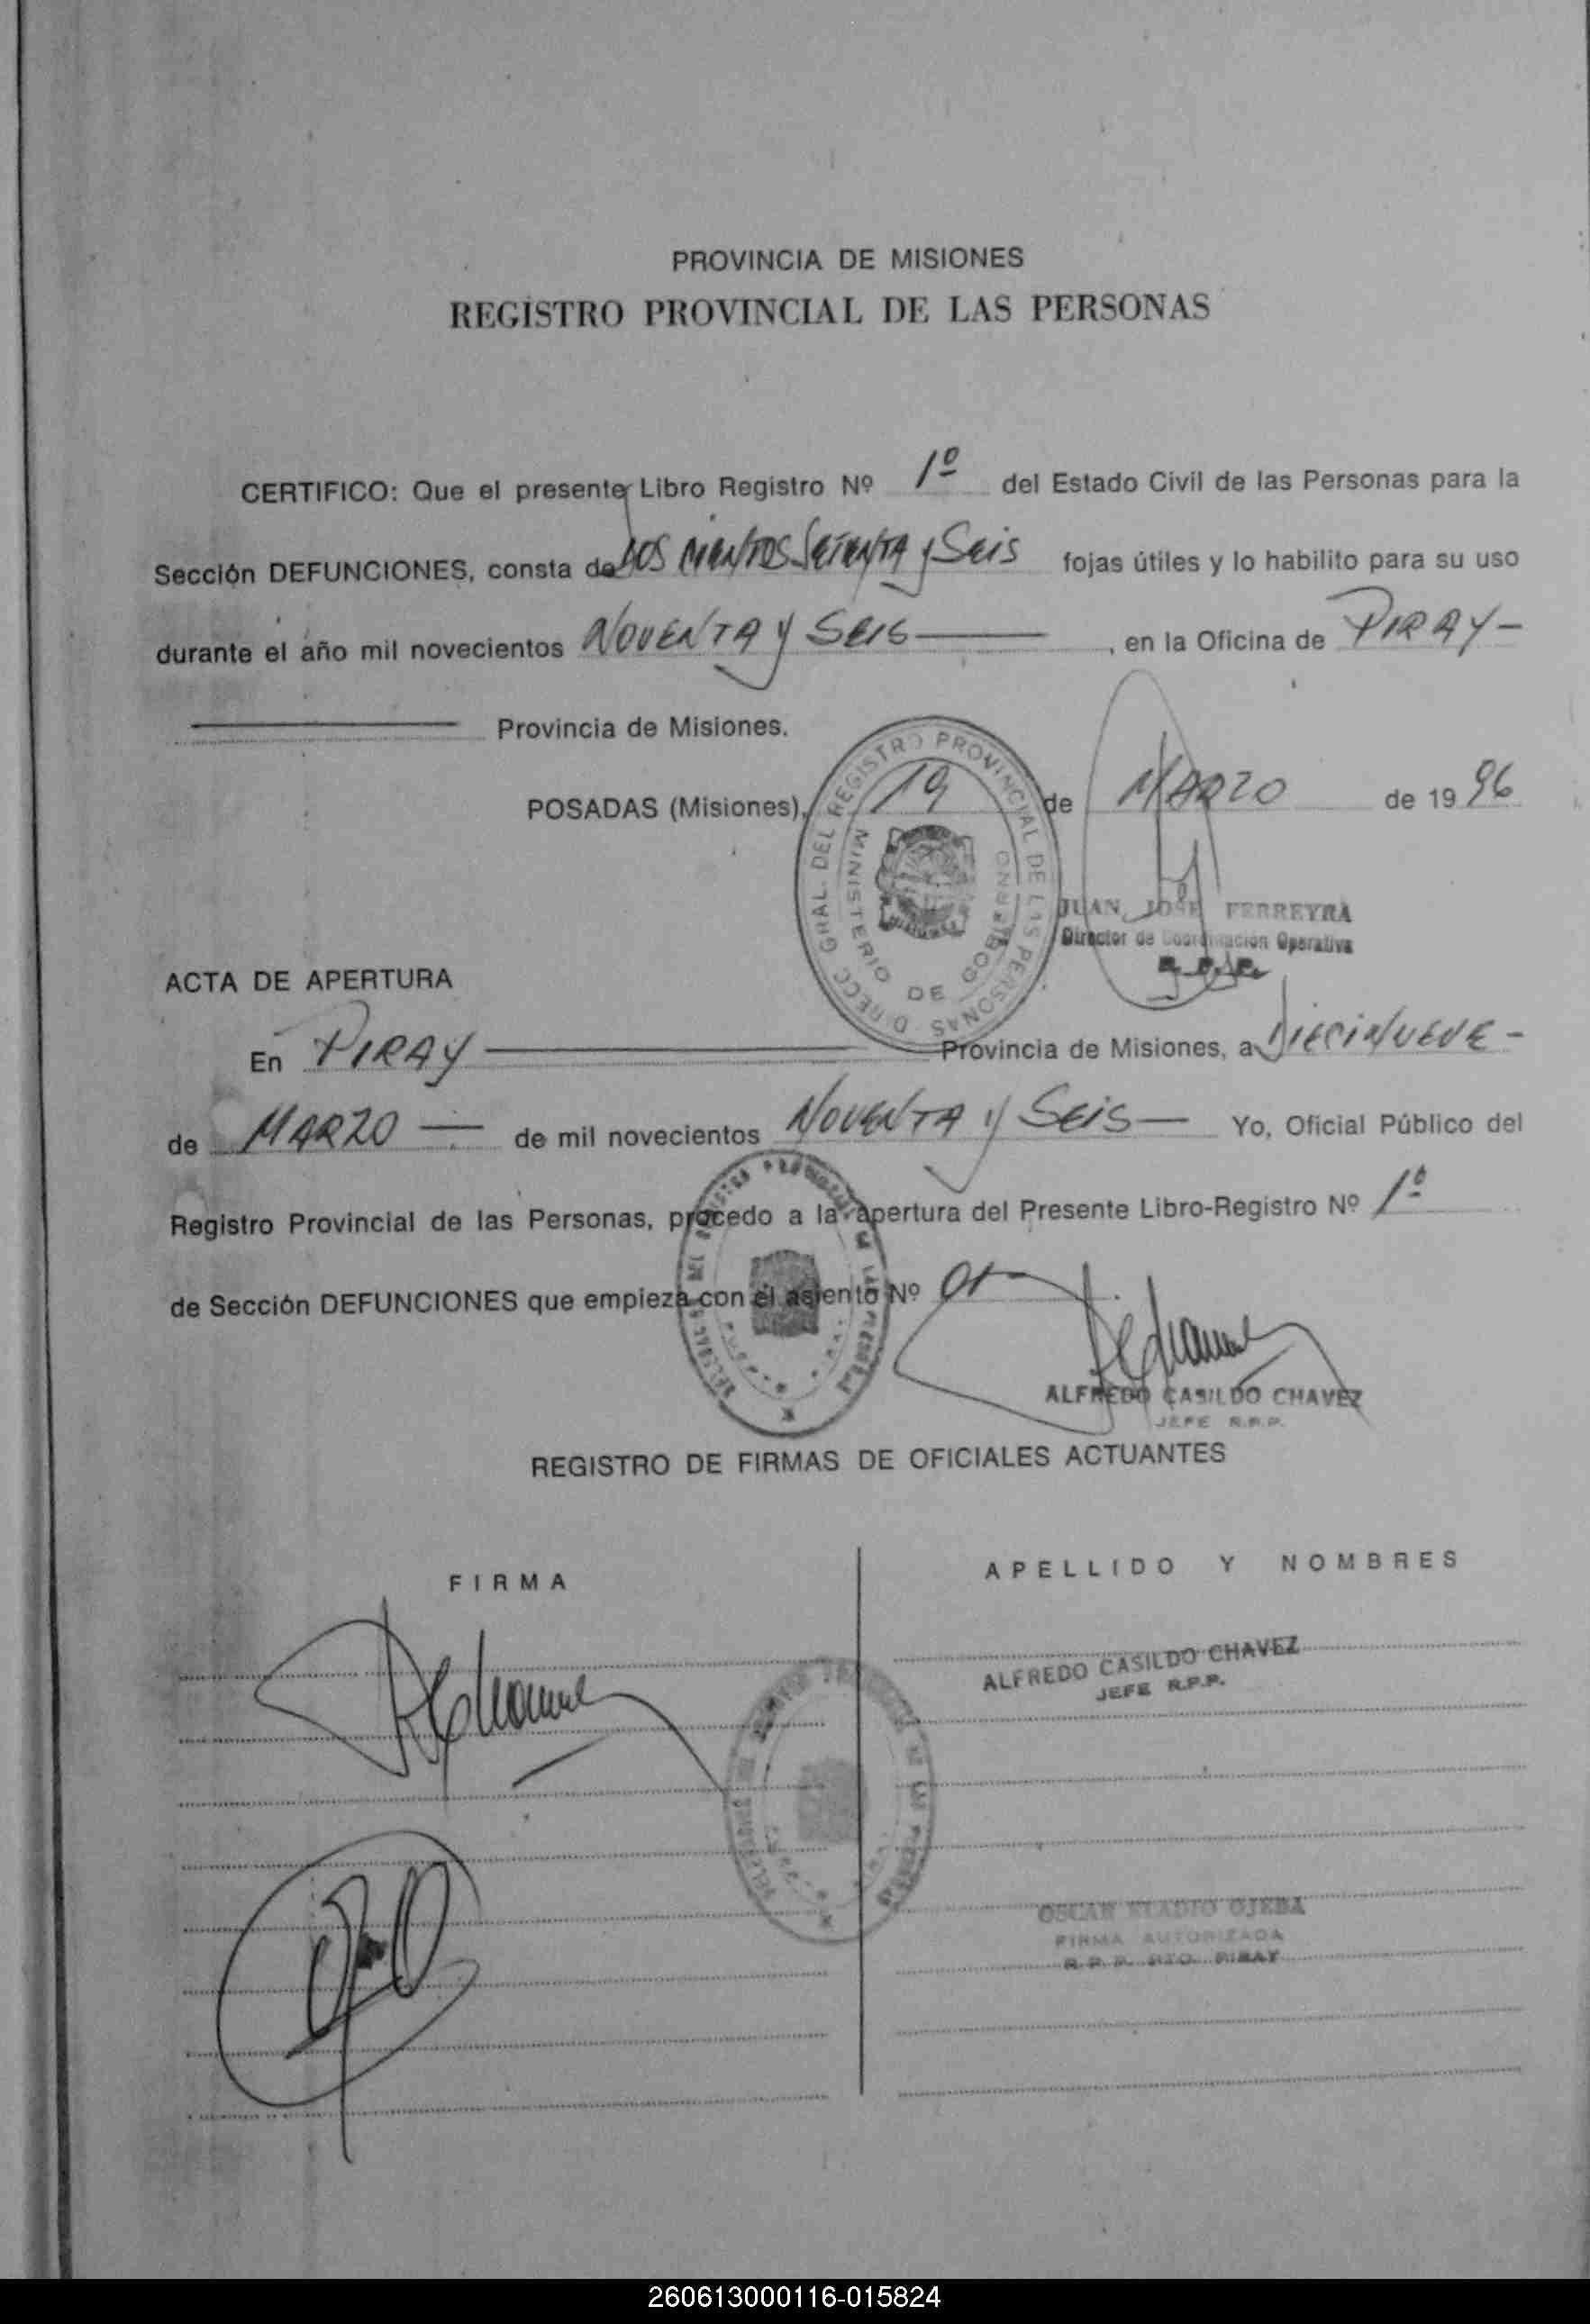 PROVINCIA DE MISIONES
REGISTRO PROVINCIAL DE LAS PERSONAS
CERTIFICO: Que el presente Libro Registro Nº 1º del Estado Civil de las Personas para la
Sección DEFUNCIONES, consta de DOS CIENTOS SETENTA y SEIS fojas útiles y lo habilito para su uso
durante el año mil novecientos NOVENTA y SEIS , en la Oficina de PIRAY-
Provincia de Misiones.
POSADAS (Misiones), 19 de MARZO de 1996
DIRECC GRAL. DEL REGISTRO PROVINCIAL DE LAS PERSONAS
MINISTERIO DE GOBIERNO
JUAN JOSE FERREYRA
Director de Coordinación Operativa
ACTA DE APERTURA
En PIRAY Provincia de Misiones, a DIECINUEVE -
de MARZO — de mil novecientos NOVENTA y SEIS — Yo, Oficial Público del
Registro Provincial de las Personas, procedo a la apertura del Presente Libro-Registro Nº 1º
de Sección DEFUNCIONES que empieza con el asiento Nº 01-
ALFREDO CASILDO CHAVEZ
JEFE R.P.P.
REGISTRO DE FIRMAS DE OFICIALES ACTUANTES
FIRMA
APELLIDO Y NOMBRES
ALFREDO CASILDO CHAVEZ
JEFE R.P.P.
OSCAR ELADIO OJEDA
FIRMA AUTORIZADA
R.P.P. PTO. PIRAY
260613000116-015824